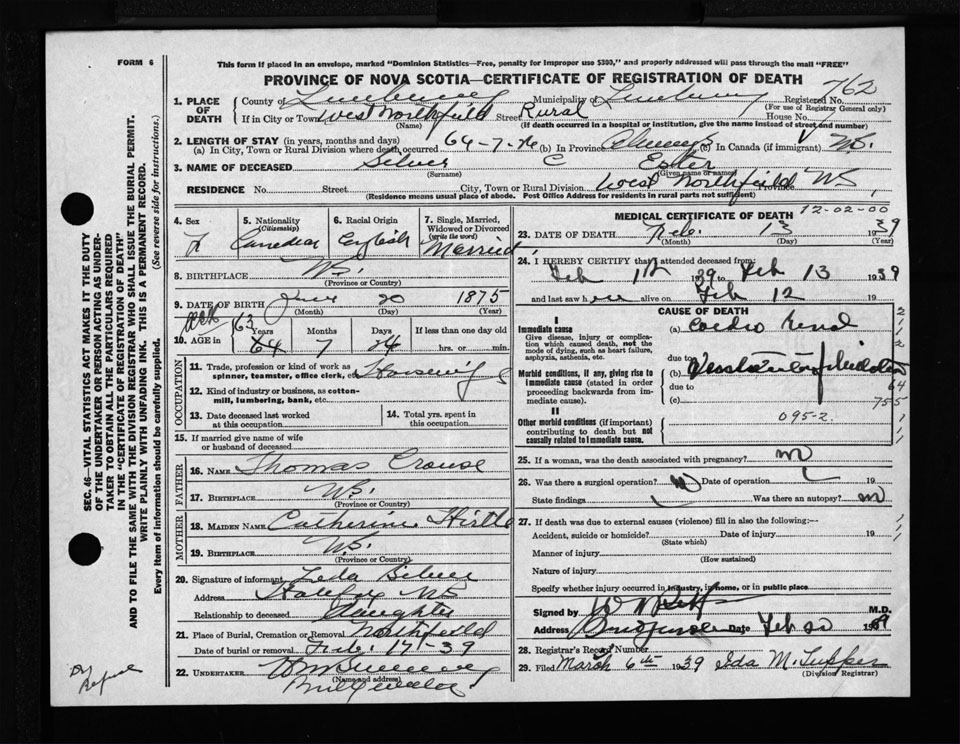 FORM 6
This form if placed in an envelope, marked "Dominion Statistics—Free, penalty for improper use $300," and properly addressed will pass through the mail "FREE"
PROVINCE OF NOVA SCOTIA—CERTIFICATE OF REGISTRATION OF DEATH
762
1. PLACE OF DEATH
County of Lunenburg Municipality of Lunenburg Registered No.
(For use of Registrar General only)
If in City or Town West Northfield Street Rural House No.
(Name) (If death occurred in a hospital or institution, give the name instead of street and number)
2. LENGTH OF STAY (in years, months and days)
(a) In City, Town or Rural Division where death occurred 64-7-24 (b) In Province (c) In Canada (if immigrant) N.S.
3. NAME OF DECEASED Silver C Ester
(Surname) (Given name or names)
RESIDENCE No. Street City, Town or Rural Division West Northfield Province N.S.
(Residence means usual place of abode. Post Office Address for residents in rural parts not sufficient)
4. Sex F
5. Nationality (Citizenship) Canadian
6. Racial Origin English
7. Single, Married, Widowed or Divorced (write the word) Married
8. BIRTHPLACE N.S.
(Province or County)
9. DATE OF BIRTH June 20 1875
(Month) (Day) (Year)
10. AGE in 63 64 Years 7 Months 24 Days If less than one day old hrs. or min.
OCCUPATION
11. Trade, profession or kind of work as spinner, teamster, office clerk, etc. Housewife
12. Kind of industry or business, as cotton-mill, lumbering, bank, etc.
13. Date deceased last worked at this occupation
14. Total yrs. spent in this occupation
15. If married give name of wife or husband of deceased
FATHER
16. NAME Thomas Crouse
17. BIRTHPLACE N.S.
(Province or County)
MOTHER
18. MAIDEN NAME Catherine Hirtle
19. BIRTHPLACE N.S.
(Province or County)
20. Signature of informant Leda Silver
Address Halifax NS
Relationship to deceased Daughter
21. Place of Burial, Cremation or Removal Northfield
Date of burial or removal Feb. 17-39
22. UNDERTAKER
(Name and address)
MEDICAL CERTIFICATE OF DEATH 12-02-00
23. DATE OF DEATH Feb. 13 1939
(Month) (Day) (Year)
24. I HEREBY CERTIFY that I attended deceased from:
Feb 1st 1939 to Feb 13 1939
and last saw her alive on Feb 12 19
CAUSE OF DEATH
I
Immediate cause
Give disease, injury or complication which caused death, not the mode of dying, such as heart failure, asphyxia, asthenia, etc.
(a) Cardio Renal
due to
Morbid conditions, if any, giving rise to immediate cause (stated in order proceeding backwards from immediate cause).
(b)
due to
64
(c) 755
II
Other morbid conditions (if important) contributing to death but not causally related to immediate cause.
095-2.
25. If a woman, was the death associated with pregnancy? no
26. Was there a surgical operation? no Date of operation 19
State findings Was there an autopsy? no
27. If death was due to external causes (violence) fill in also the following:—
Accident, suicide or homicide? Date of injury 19
(State which)
Manner of injury
(How sustained)
Nature of injury
Specify whether injury occurred in industry, in home, or in public place
Signed by M.D.
Address Date Feb 20 1939
28. Registrar's Record Number
29. Filed March 6th 1939 Ida M. Tupper
(Division Registrar)
SEC. 46—VITAL STATISTICS ACT MAKES IT THE DUTY
OF THE UNDERTAKER OR PERSON ACTING AS UNDER-
TAKER TO OBTAIN ALL THE PARTICULARS REQUIRED
IN THE "CERTIFICATE OF REGISTRATION OF DEATH"
AND TO FILE THE SAME WITH THE DIVISION REGISTRAR WHO SHALL ISSUE THE BURIAL PERMIT.
WRITE PLAINLY WITH UNFADING INK. THIS IS A PERMANENT RECORD.
Every item of information should be carefully supplied. (See reverse side for instructions.)